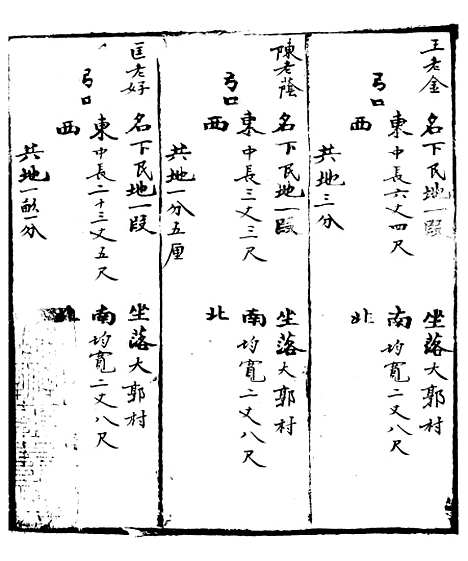 王老金 名下民地一段 坐落大郭村
弓口 東中長六丈四尺 南均寬二丈八尺
西 北
共地三分
陳老蔭 名下民地一段 坐落大郭村
弓口 東中長三丈三尺 南均寬二丈八尺
西 北
共地一分五厘
匡老好 名下民地一段 坐落大郭村
弓口 東中長二十三丈五尺 南均寬二丈八尺
西 北
共地一畝一分